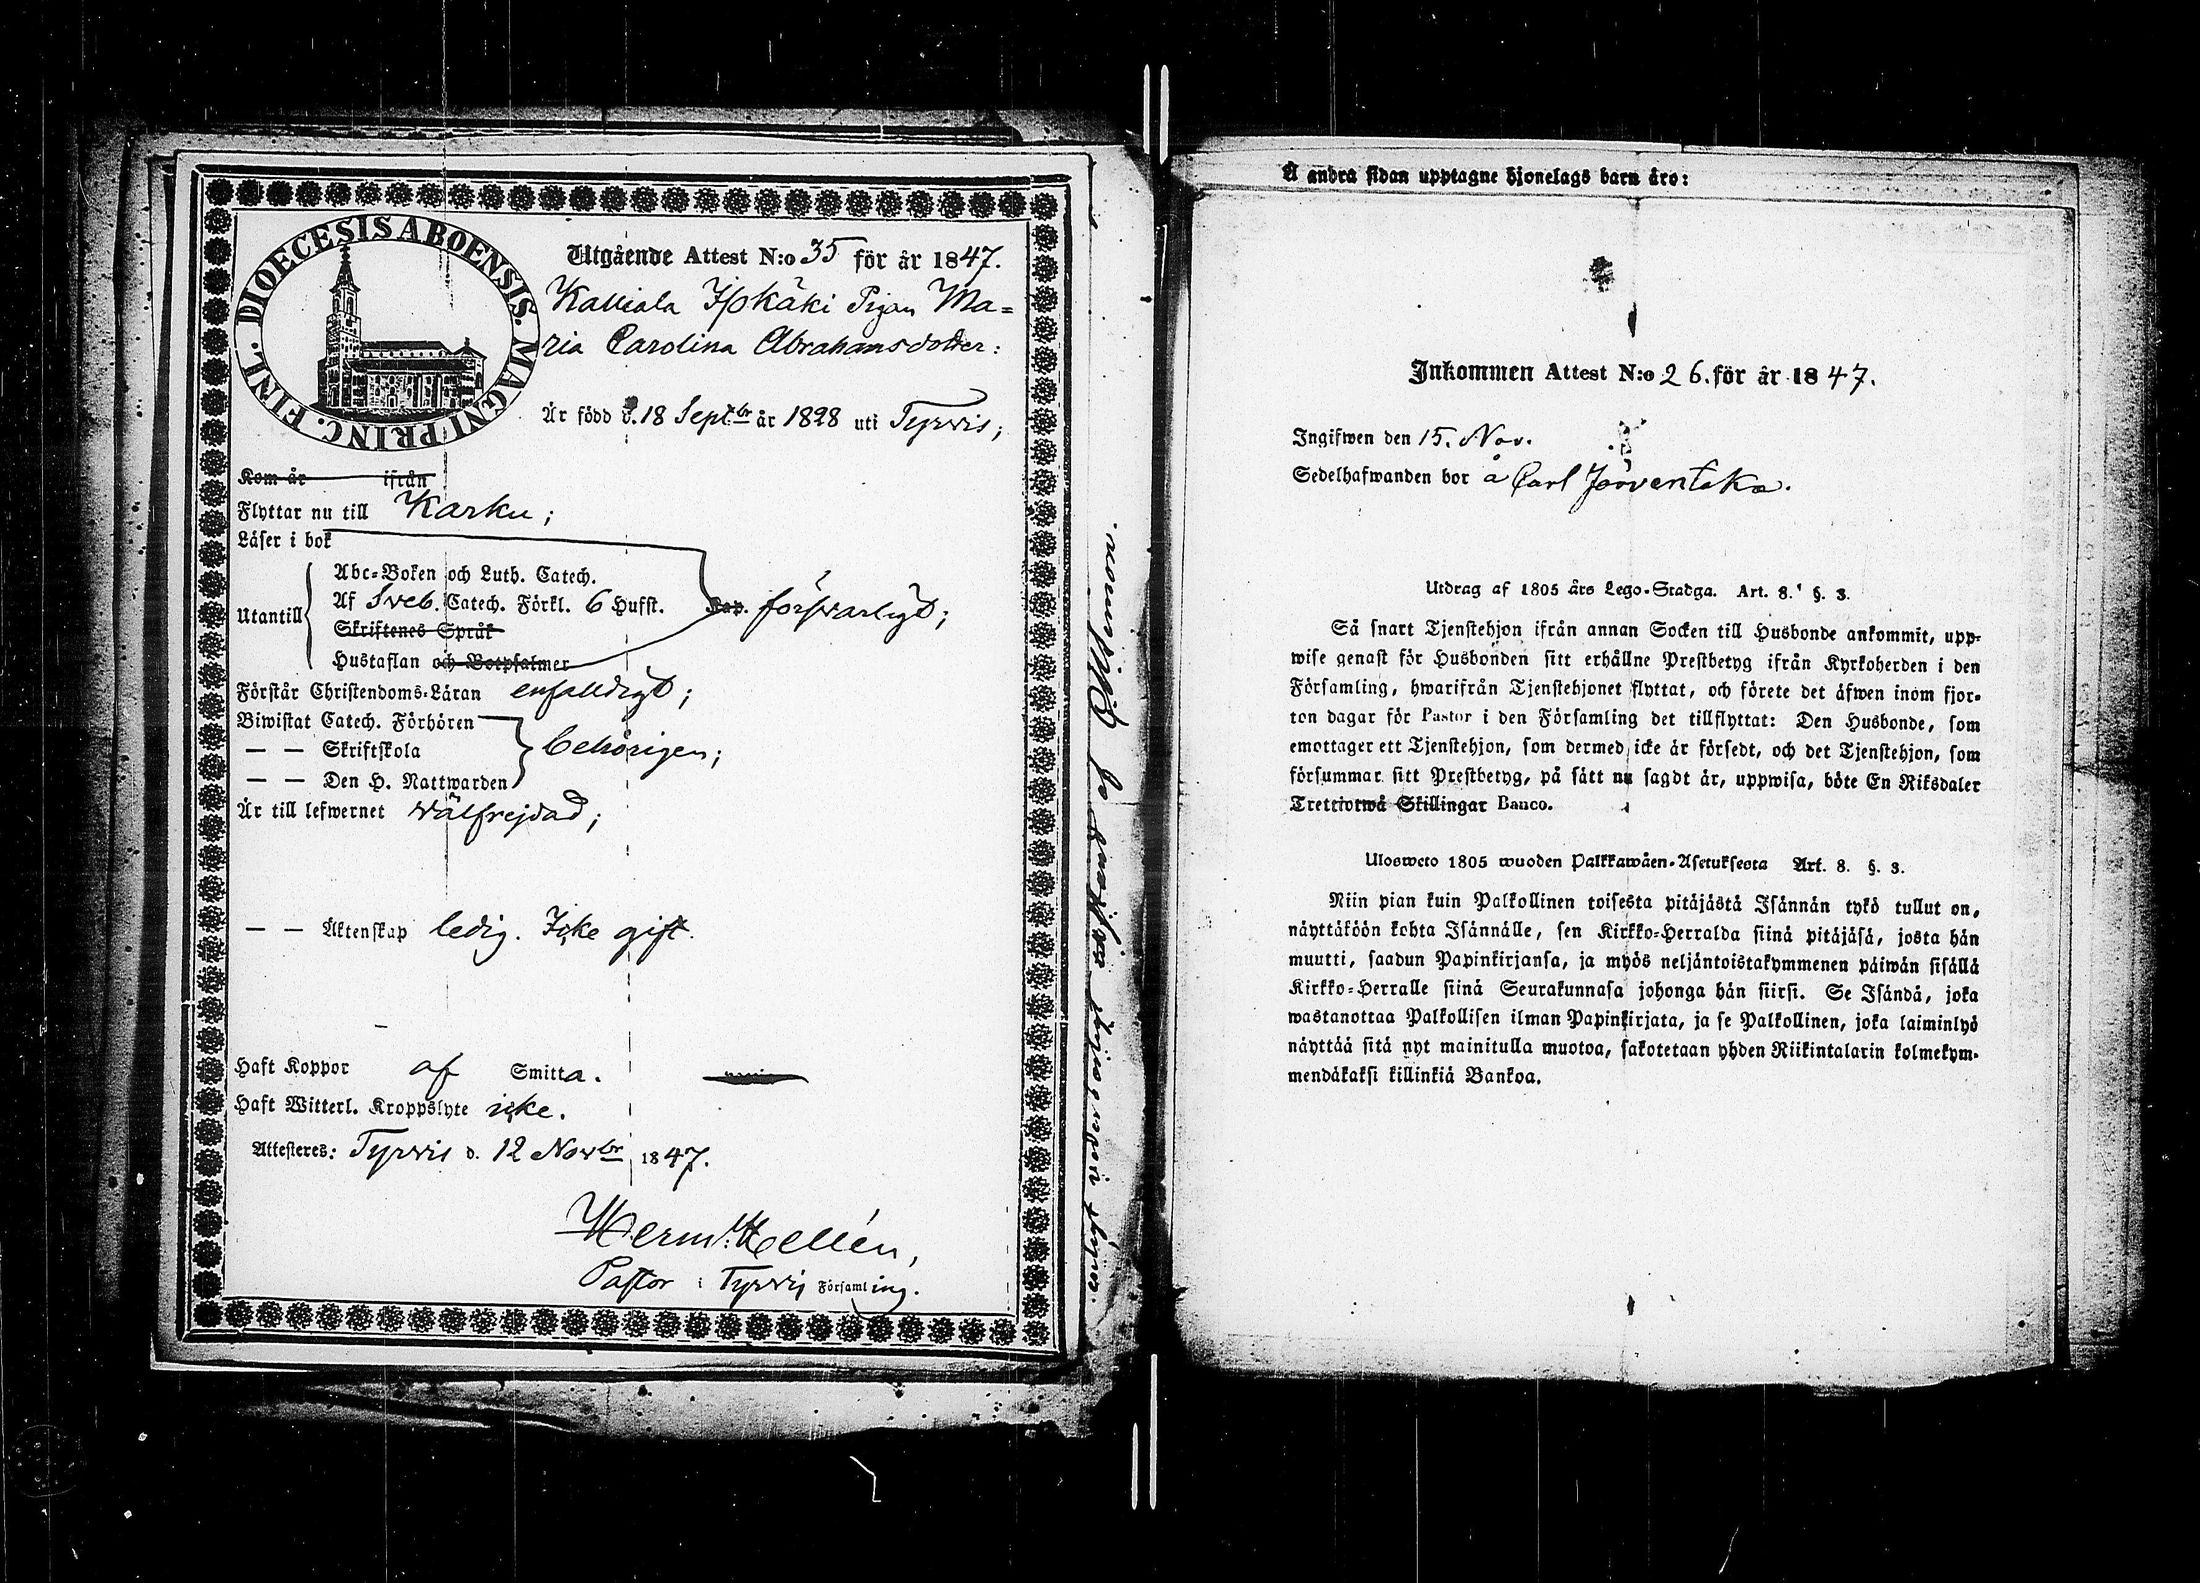 DIOECESIS ABOENSIS. MAGNI PRINC. FINL.
Utgående Attest N:o 35 för år 1847.
Kalliala Ihokäki Pigan Ma=
ria Carolina Abrahamsdotter:
Är född d. 18 Septbr år 1828 uti Tyrvis;
Kom år ifrån
Flyttar nu till Karku;
Läser i bok
Utantill
Abc-Boken och Luth. Catech.
Af Sveb. Catech. Förkl. 6 Hufst. Kap. försvarligt;
Skriftenes Språk
Hustaflan och Botpsalmer
Förstår Christendoms-Läran enfalldigt;
Biwistat Catech. Förhören
— — Skriftskola behörigen;
— — Den H. Nattwarden
Är till lefwernet välfrejdad;
— — Äktenskap ledig. Icke gift.
Haft Koppor af Smitta.
Haft Witterl. Kroppslyte icke.
Attesteres: Tyrvis d. 12 Novbr 1847.
Herm: Hellén,
Pastor i Tyrvis Församling.
Å andra sidan upptagne hjonelags barn äro:
Inkommen Attest N:o 26. för år 1847.
Ingifwen den 15. Nov.
Sedelhafwanden bor å Carl Järventaka.
Utdrag af 1805 års Lego-Stadga. Art. 8. §. 3.
Så snart Tjenstehjon ifrån annan Socken till Husbonde ankommit, upp-
wise genast för Husbonden sitt erhållne Prestbetyg ifrån Kyrkoherden i den
Församling, hwarifrån Tjenstehjonet flyttat, och förete det äfwen inom fjor-
ton dagar för Pastor i den Församling det tillflyttat: Den Husbonde, som
emottager ett Tjenstehjon, som dermed icke är försedt, och det Tjenstehjon, som
försummar sitt Prestbetyg, på sätt nu sagdt är, uppwisa, böte En Riksdaler
Trettiotwå Skillingar Banco.
Ulosweto 1805 wuoden Palkkawäen-Asetuksesta Art. 8. §. 3.
Niin pian kuin Palkollinen toisesta pitäjästä Isännän tykö tullut on,
näyttäköön kohta Isännälle, sen Kirkko-Herralda siinä pitäjäsä, josta hän
muutti, saadun Papinkirjansa, ja myös neljäntoistakymmenen päiwän sisällä
Kirkko-Herralle siinä Seurakunnasa johonga hän siirsi. Se Isändä, joka
wastanottaa Palkollisen ilman Papinkirjata, ja se Palkollinen, joka laiminlyö
näyttää sitä nyt mainitulla muotoa, sakotetaan yhden Riikintalarin kolmekym-
mendäkaksi killinkiä Bankoa.